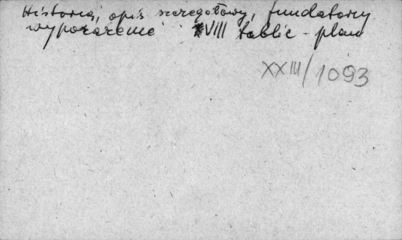 Historia, opis szczegółowy, fundatorzy
wyposażenie XVIII tablic - plan
XXIII/1093